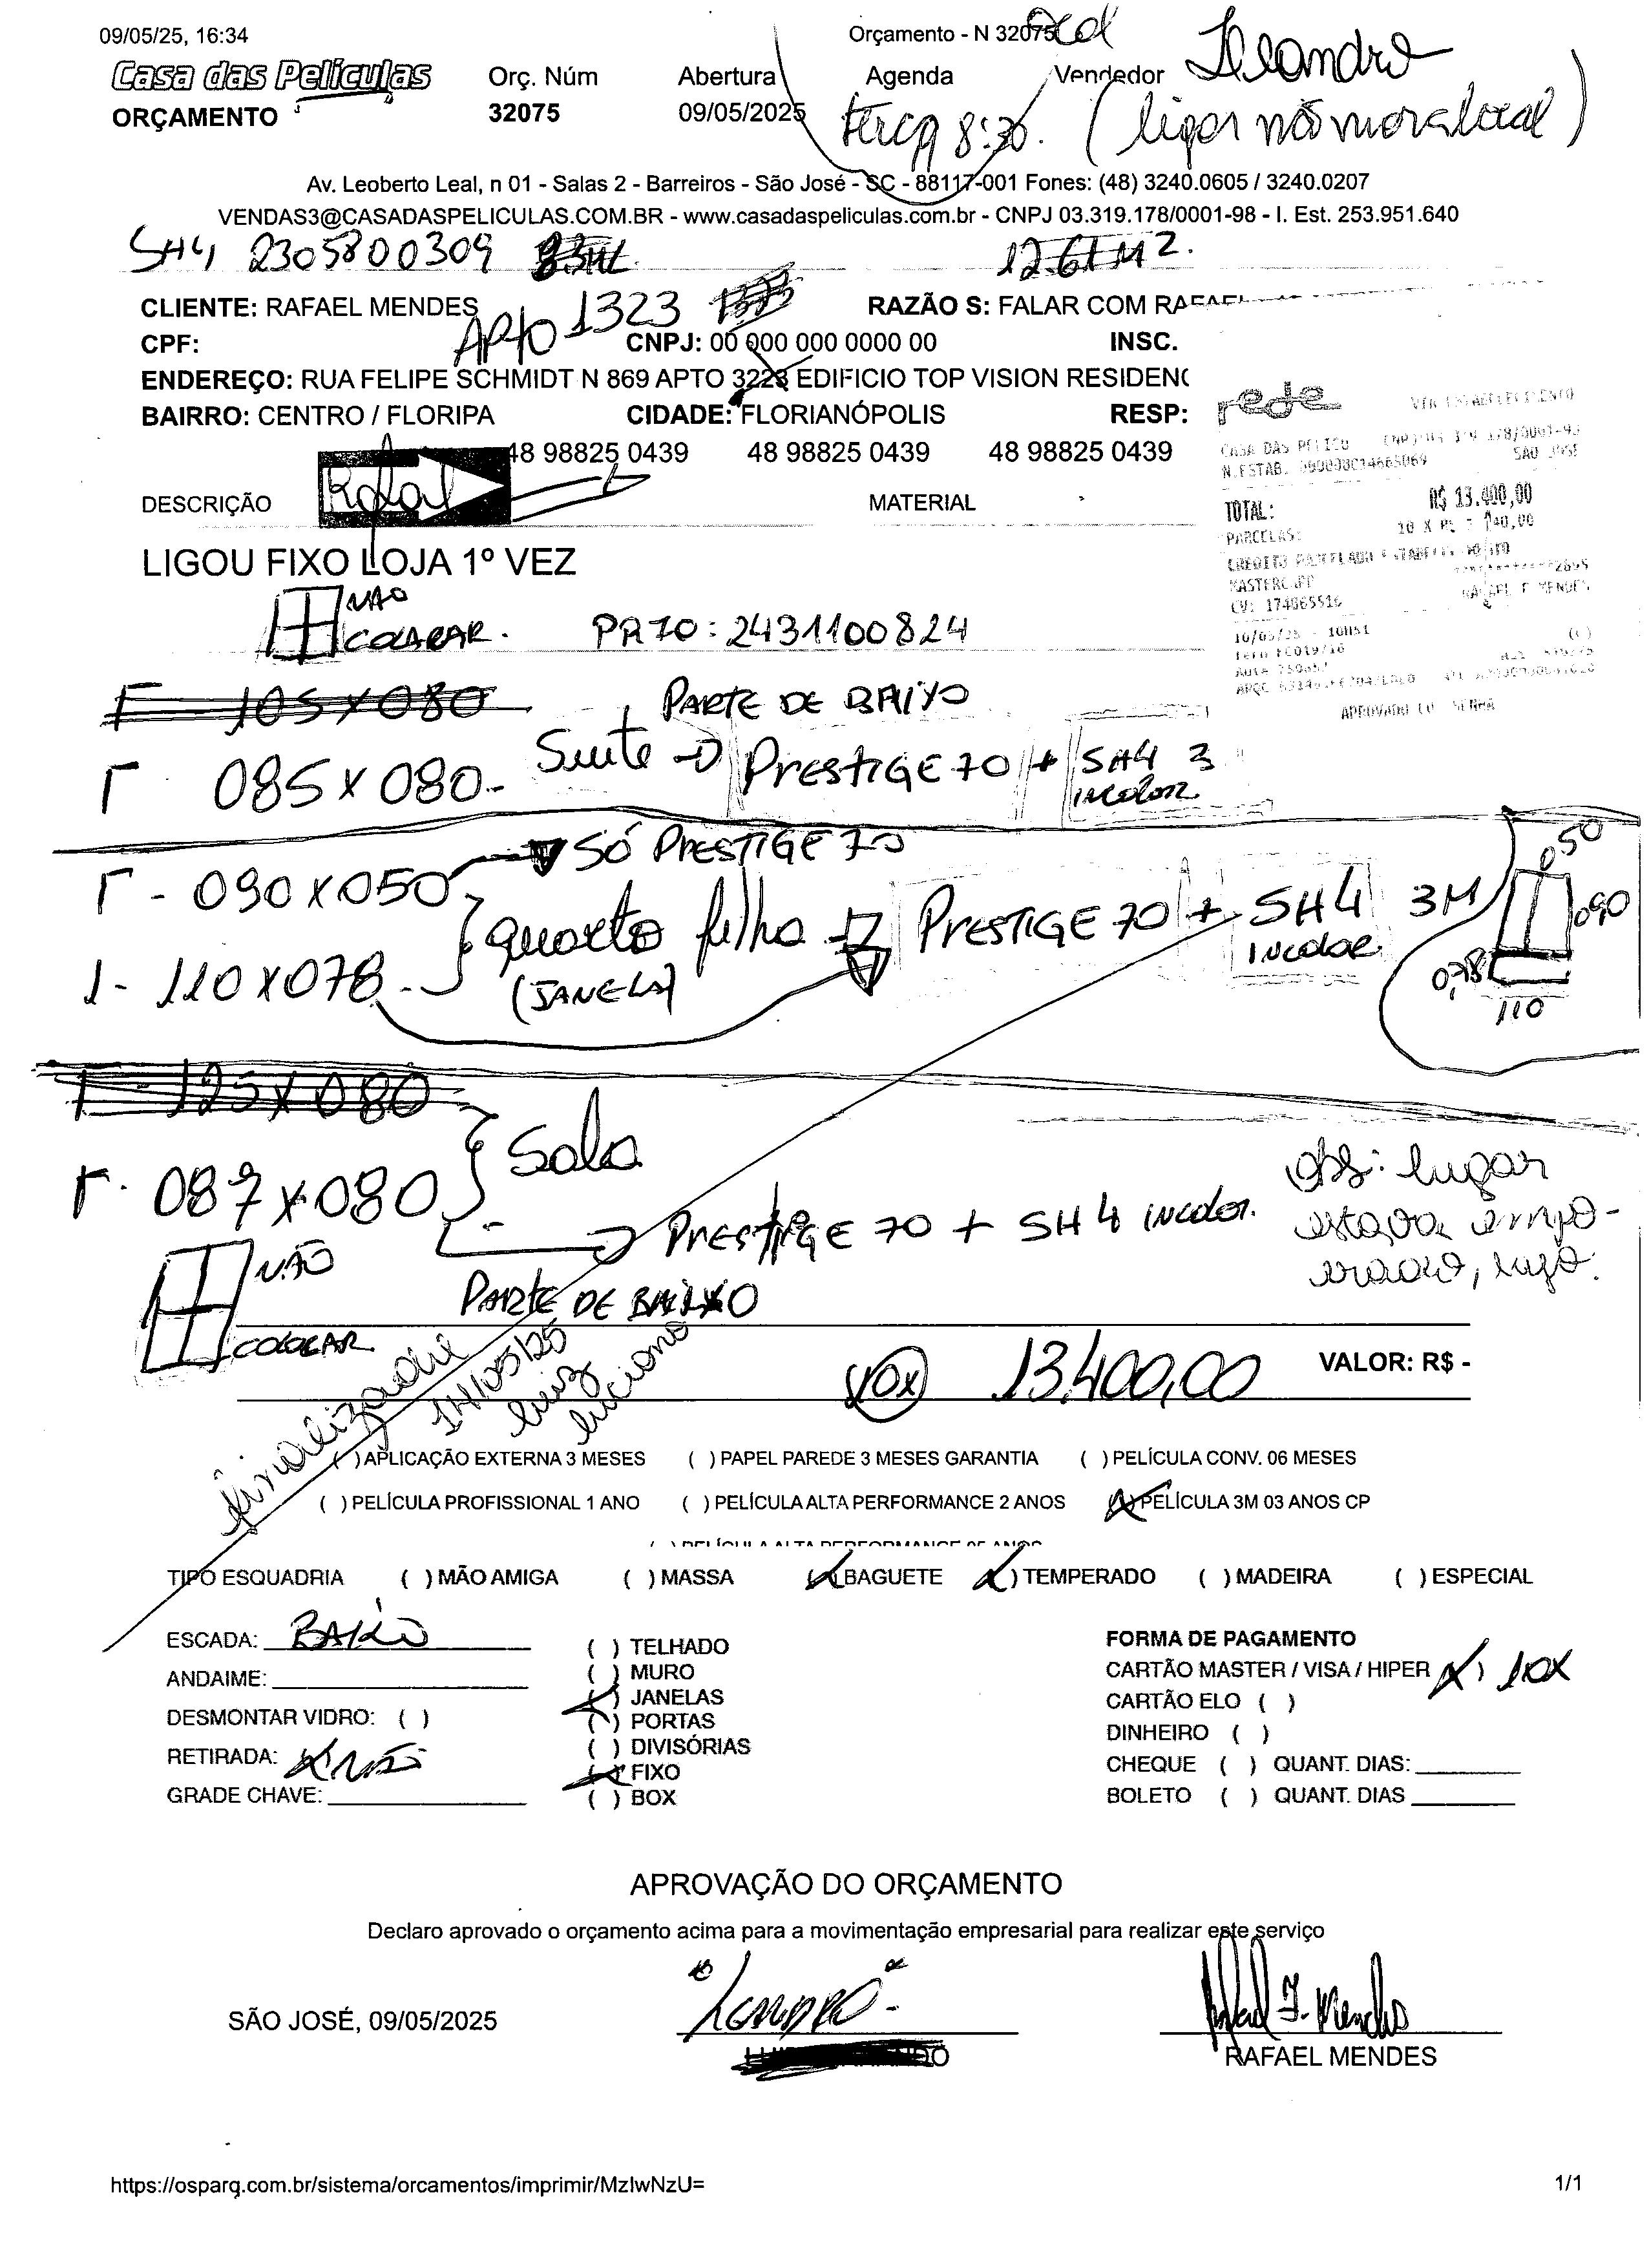 09/05/25, 16:34
Orçamento - N 32075
Casa das Películas
Orç. Núm
Abertura
Agenda
Vendedor
Leandro
ORÇAMENTO
32075
09/05/2025
terça 8:30.
(ligar não mora local)
Av. Leoberto Leal, n 01 - Salas 2 - Barreiros - São José - SC - 88117-001 Fones: (48) 3240.0605 / 3240.0207
VENDAS3@CASADASPELICULAS.COM.BR - www.casadaspeliculas.com.br - CNPJ 03.319.178/0001-98 - I. Est. 253.951.640
SH4 2305800309
12.61 M2.
CLIENTE: RAFAEL MENDES
APTO 1323
RAZÃO S: FALAR COM RAFAEL
CPF:
CNPJ: 00 000 000 0000 00
INSC.
ENDEREÇO: RUA FELIPE SCHMIDT N 869 APTO 3223 EDIFICIO TOP VISION RESIDENC
BAIRRO: CENTRO / FLORIPA
CIDADE: FLORIANÓPOLIS
RESP:
48 98825 0439
48 98825 0439
48 98825 0439
DESCRIÇÃO
Rafael
MATERIAL
rede
TOTAL:
R$ 13.400,00
PARCELAS:
CV: 174865516
LIGOU FIXO LOJA 1º VEZ
NÃO
COLOCAR.
PR70: 2431100824
1 105 x 080
PARTE DE BAIXO
1 085 x 080 -
Suite → PRESTIGE 70 + SH4 3
INCOLOR
SÓ PRESTIGE 70
1 - 090 x 050
quarto filho → PRESTIGE 70 + SH4 3M
INCOLOR
1 - 110 x 078 -
(JANELA)
050
090
0,78
110
1 - 125 x 080
Sala
1 - 087 x 080
→ PRESTIGE 70 + SH4 INCOLOR.
Obs: lugar
estava empo-
erado, sujo.
NÃO
COLOCAR
PARTE DE BAIXO
10x
13.400,00
VALOR: R$ -
finalizado
14/05/25
Luiz
Luciano
( ) APLICAÇÃO EXTERNA 3 MESES
( ) PAPEL PAREDE 3 MESES GARANTIA
( ) PELÍCULA CONV. 06 MESES
( ) PELÍCULA PROFISSIONAL 1 ANO
( ) PELÍCULA ALTA PERFORMANCE 2 ANOS
(X) PELÍCULA 3M 03 ANOS CP
( ) PELÍCULA ALTA PERFORMANCE 05 ANOS
TIPO ESQUADRIA
( ) MÃO AMIGA
( ) MASSA
(X) BAGUETE
(X) TEMPERADO
( ) MADEIRA
( ) ESPECIAL
ESCADA: BAIXO
ANDAIME:
DESMONTAR VIDRO: ( )
RETIRADA: X NÃO
GRADE CHAVE:
( ) TELHADO
( ) MURO
(X) JANELAS
( ) PORTAS
( ) DIVISÓRIAS
(X) FIXO
( ) BOX
FORMA DE PAGAMENTO
CARTÃO MASTER / VISA / HIPER (X) 10X
CARTÃO ELO ( )
DINHEIRO ( )
CHEQUE ( ) QUANT. DIAS:
BOLETO ( ) QUANT. DIAS
APROVAÇÃO DO ORÇAMENTO
Declaro aprovado o orçamento acima para a movimentação empresarial para realizar este serviço
SÃO JOSÉ, 09/05/2025
Leandro
Rafael F. Mendes
RAFAEL MENDES
https://osparq.com.br/sistema/orcamentos/imprimir/MzIwNzU=
1/1